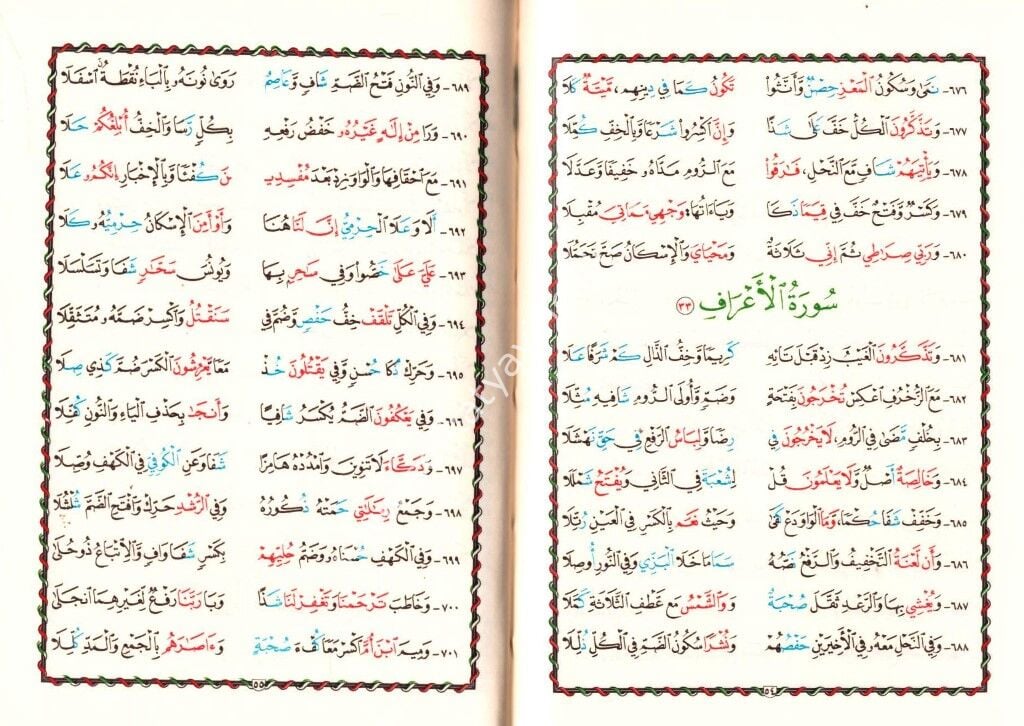 ٦٧٦- نَمَىٰ وَسُكُونُ الْمَعْزِ حِصْنٌ وَأَنَّثُوا تَكُونُ كَمَا فِي دِينِهِمْ مَيْتَةٌ كَلَا
٦٧٧- وَتَذَكَّرُونَ الْكُلُّ خَفَّ عَلَىٰ شَذًا وَإِنَّ اكْسِرُوا شَرْعًا وَبِالْخِفِّ كُمِّلَا
٦٧٨- وَيَأْتِيَهُمْ شَافٍ مَعَ النَّحْلِ فَارَقُوا مَعَ الرُّومِ مَدَّاهُ خَفِيفًا وَعَدَّلَا
٦٧٩- وَكَسْرٌ وَفَتْحٌ خَفَّ فِي قِيَمًا ذَكَا وَيَاءَاتُهَا وَجْهِي مَمَاتِيَ مُقْبِلَا
٦٨٠- وَرَبِّي صِرَاطِي ثُمَّ إِنِّي ثَلَاثَةٌ وَمَحْيَايَ وَالْإِسْكَانُ صَحَّ تَحَمُّلَا
سُورَةُ الْأَعْرَافِ ٣٣
٦٨١- وَتَذَّكَّرُونَ الْغَيْبَ زِدْ قَبْلَ تَائِهِ كَرِيمًا وَخِفُّ الذَّالِ كَمْ شَرَفًا عَلَا
٦٨٢- مَعَ الزُّخْرُفِ اعْكِسْ تُخْرَجُونَ بِفَتْحَةٍ وَضَمٍّ وَأُولَى الرُّومِ شَافِيهِ مُثِّلَا
٦٨٣- بِخُلْفٍ مَضَىٰ فِي الرُّومِ لَا يَخْرُجُونَ فِي رِضًا وَلِبَاسُ الرَّفْعُ فِي حَقِّ نَهْشَلَا
٦٨٤- وَخَالِصَةٌ أَصْلٌ وَلَا يَعْلَمُونَ قُلْ لِشُعْبَةَ فِي الثَّانِي وَيُفْتَحُ شَمْلَلَا
٦٨٥- وَخَفِّفْ شَفَا حُكْمًا وَمَا الْوَاوَ دَعْ كَفَىٰ وَحَيْثُ نَعَمْ بِالْكَسْرِ فِي الْعَيْنِ رُتِّلَا
٦٨٦- وَأَنْ لَعْنَةُ التَّخْفِيفُ وَالرَّفْعُ نَصُّهُ سَمَا مَا خَلَا الْبَزِّي وَفِي النُّورِ أُوصِلَا
٦٨٧- وَيُغْشِي بِهَا وَالرَّعْدِ ثَقَّلَ صُحْبَةٌ وَوَالشَّمْسُ مَعْ عَطْفِ الثَّلَاثَةِ كَمَّلَا
٦٨٨- وَفِي النَّحْلِ مَعْهُ فِي الْأَخِيرَيْنِ حَفْصُهُمْ وَنُشْرًا سُكُونُ الضَّمِّ فِي الْكُلِّ ذُلِّلَا
٥٤
٦٨٩- وَفِي النُّونِ فَتْحُ الضَّمِّ شَافٍ وَعَاصِمٌ رَوَىٰ نُونَهُ بِالْبَاءِ نُقْطَةٌ اسْفَلَا
٦٩٠- وَرَا مِنْ إِلَٰهٍ غَيْرُهُ خَفْضُ رَفْعِهِ بِكُلٍّ رَسَا وَالْخِفُّ أُبْلِغُكُمْ حَلَا
٦٩١- مَعَ احْقَافِهَا وَالْوَاوَ زِدْ بَعْدَ مُفْسِدِينَ كُفْئًا وَبِالْإِخْبَارِ إِنَّكُمُ عَلَا
٦٩٢- أَلَا وَعَلَا الْحِرْمِيُّ إِنَّ لَنَا هُنَا وَأَوْ أَمِنَ الْإِسْكَانُ حِرْمِيُّهُ كَلَا
٦٩٣- عَلَيَّ عَلَىٰ خَصُّوا وَفِي سَاحِرٍ بِهَا وَيُونُسَ سَحَّارٍ شَفَا وَتَسَلْسَلَا
٦٩٤- وَفِي الْكُلِّ تَلْقَفْ خِفُّ حَفْصٍ وَضُمَّ فِي سَنَقْتُلُ وَاكْسِرْ ضَمَّهُ مُتَثَقِّلَا
٦٩٥- وَحَرِّكْ ذَكَا حُسْنٍ وَفِي يَقْتُلُونَ خُذْ مَعًا يَعْرِشُونَ الْكَسْرُ ضُمَّ كَذِي صِلَا
٦٩٦- وَفِي يَعْكِفُونَ الضَّمُّ يُكْسَرُ شَافِيًا وَأَنْجَىٰ بِحَذْفِ الْيَاءِ وَالنُّونِ كُفِّلَا
٦٩٧- وَدَكَّاءَ لَا تَنْوِينَ وَامْدُدْهُ هَامِزًا شَفَا وَعَنِ الْكُوفِيِّ فِي الْكَهْفِ وُصِّلَا
٦٩٨- وَجَمْعُ رِسَالَاتِي حَمَتْهُ ذُكُورُهُ وَفِي الرُّشْدِ حَرِّكْ وَافْتَحِ الضَّمَّ شُلْشُلَا
٦٩٩- وَفِي الْكَهْفِ حُسْنَاهُ وَضَمُّ حُلِيِّهِمْ بِكَسْرٍ شَفَا وَافٍ وَالْاِتْبَاعُ ذُو حُلَىٰ
٧٠٠- وَخَاطَبَ تَرْحَمْنَا وَتَغْفِرْ لَنَا شَذًا وَبَا رَبَّنَا رَفْعٌ لِغَيْرِهِمَا انْجَلَىٰ
٧٠١- وَمِيمَ ابْنَ أُمَّ اكْسِرْ مَعًا كُفْءَ صُحْبَةٍ وَءَاصَارَهُمْ بِالْجَمْعِ وَالْمَدِّ كُلِّلَا
٥٥